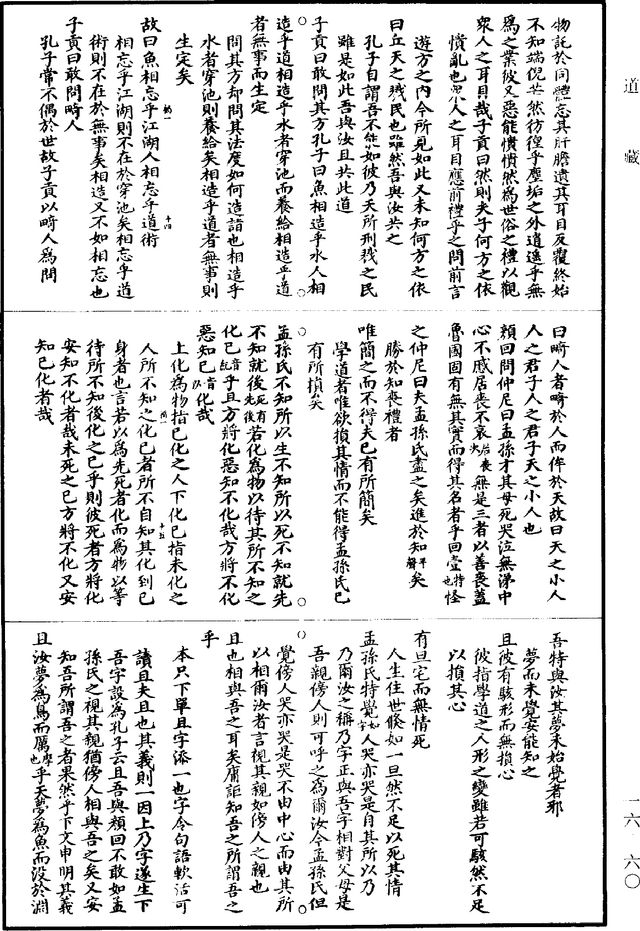 道藏
物託於同體忘其肝膽遺其耳目反覆終始
不知端倪芒然彷徨乎塵垢之外逍遙乎無
為之業彼又惡能憒憒然為世俗之禮以觀
衆人之耳目哉子貢曰然則夫子何方之依
憒亂也衆人之耳目應前禮乎之問前言
遊方之內今所見如此又未知何方之依
曰丘天之戮民也雖然吾與汝共之
孔子自謂吾不能如彼乃天所刑戮之民
雖是如此吾與汝且共此道
子貢曰敢問其方孔子曰魚相造乎水人相
造乎道相造乎水者穿池而養給相造乎道
者無事而生定
問其方却問其法度如何造詣也相造乎
水者穿池則養給矣相造乎道者無事則
生定矣
故曰魚相忘乎江湖人相忘乎道術
相忘乎江湖則不在於穿池矣相忘乎道
術則不在於無事矣相造又不如相忘也
子貢曰敢問畸人
孔子常不偶於世故子貢以畸人為問
曰畸人者畸於人而侔於天故曰天之小人
人之君子人之君子天之小人也
顏回問仲尼曰孟孫才其母死哭泣無涕中
心不慼居喪不哀無是三者以善喪蓋
魯國固有無其實而得其名者乎回壹怪
之仲尼曰夫孟孫氏盡之矣進於知矣
勝於知喪禮者
唯簡之而不得夫已有所簡矣
學道者唯欲損其情而不能得孟孫氏已
有所損矣
孟孫氏不知所以生不知所以死不知就先
不知就後若化為物以待其所不知之
化已乎且方將化惡知不化哉方將不化
惡知已化哉
上化為物指已化之人下化已指未化之
人所不知之化已者所不自知其化到已
身者也言若以為先死者化而為物以等
待所不知後化之已乎則彼死者方將化
安知不化者哉未死之已方將不化又安
知已化者哉
吾特與汝其夢未始覺者邪
夢而未覺安能知之
且彼有駭形而無損心
彼指學道之人形之變雖若可駭然不足
以損其心
有旦宅而無情死
人生住世倏如一旦然不足以死其情
孟孫氏特覺人哭亦哭是自其所以乃
乃爾汝之稱乃字正與吾字相對父母是
吾親傍人則可呼之為爾汝今孟孫氏但
覺傍人哭亦哭是哭不由中心而由其所
以相爾汝者言視其親如傍人之親也
且也相與吾之耳矣庸詎知吾之所謂吾之
乎
本只下單且字添一也字令句語軟活可
讀且夫且也其義則一因上乃字遂生下
吾字設為孔子云且吾與顏回不敢如孟
孫氏之視其親猶傍人相與吾之矣又安
知吾所謂吾之者果然乎下文申明其義
且汝夢為鳥而厲乎天夢為魚而没於淵
一六·六〇